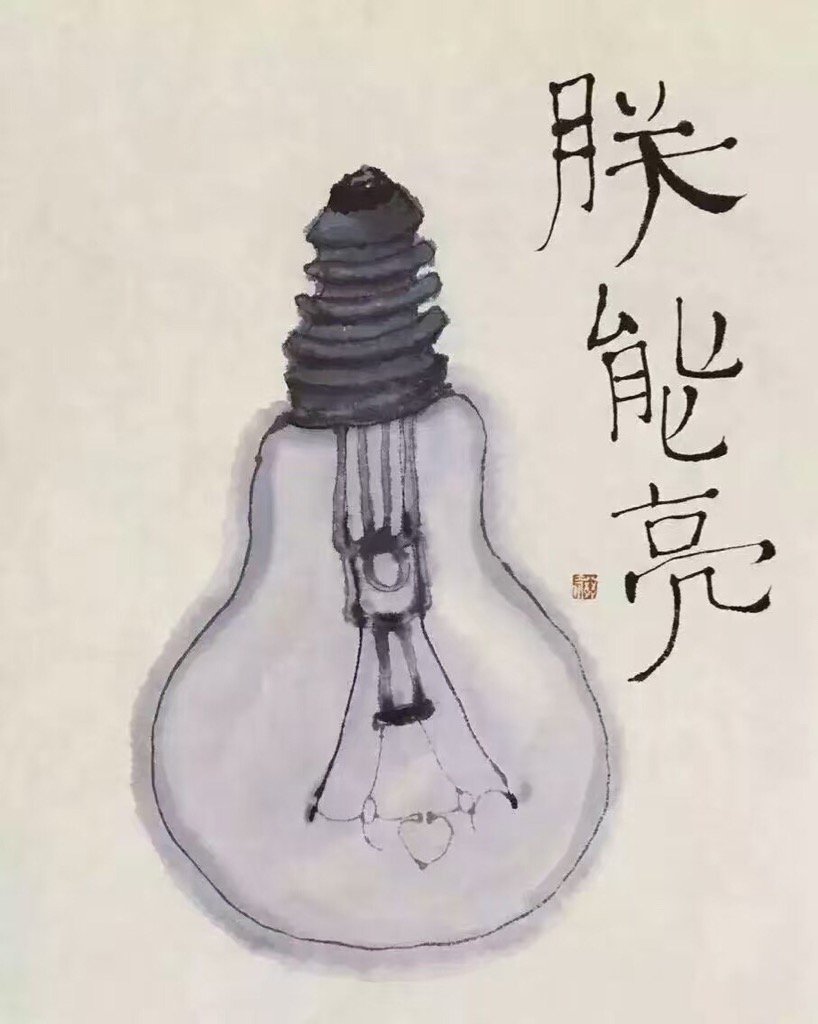 朕能亮